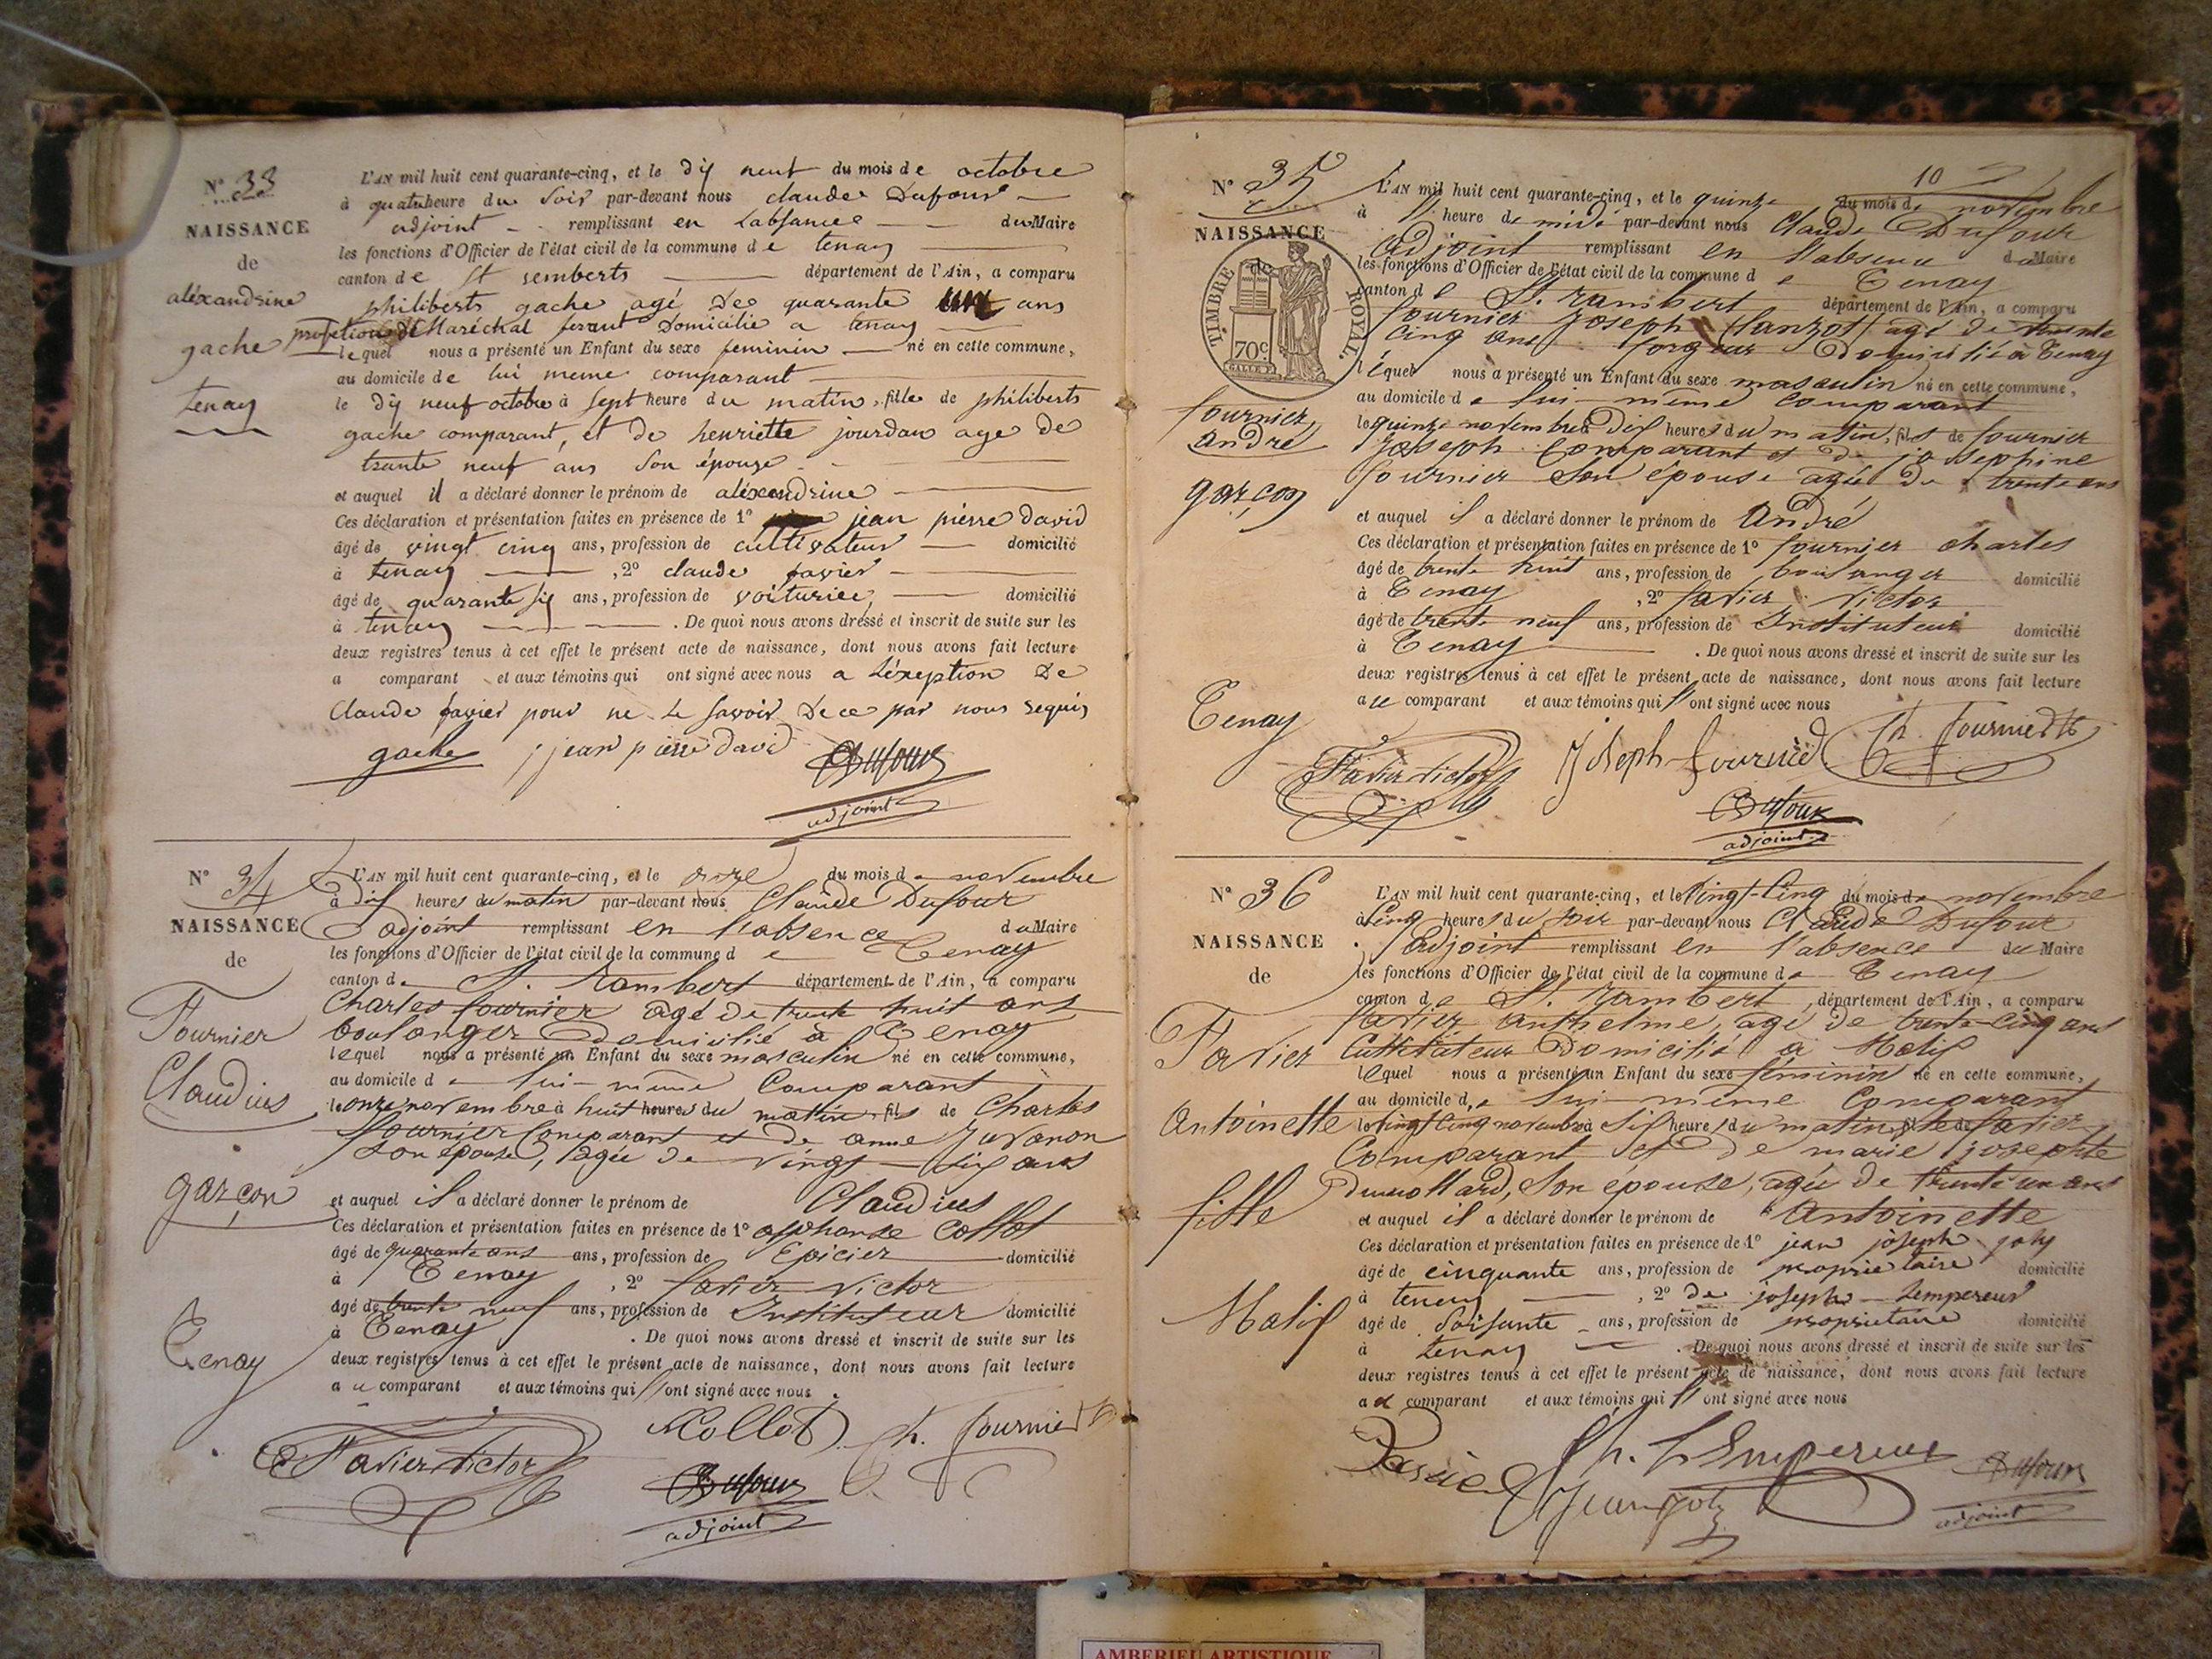 N° 33
NAISSANCE
de
aléxandrine
gache
tenay
L'AN mil huit cent quarante-cinq, et le dix neuf du mois de octobre
à quatre heure du soir par-devant nous claude Dufour
adjoint remplissant en Labsance du Maire
les fonctions d'Officier de l'état civil de la commune de tenay
canton de St remberts département de l'Ain, a comparu
philiberts gache agé de quarante ans
profetion de Maréchal ferant Domicilie a tenay
lequel nous a présenté un Enfant du sexe feminin né en cette commune,
au domicile de lui meme comparant
le dix neuf octobre à sept heure du matin, fille de philiberts
gache comparant, et de henriette jourdan age de
trante neuf ans son épouse
et auquel il a déclaré donner le prénom de aléxandrine
Ces déclaration et présentation faites en présence de 1° jean pierre david
âgé de vingt cinq ans, profession de cultivateur domicilié
à tenay , 2° claude favier
âgé de quarante six ans, profession de voiturier domicilié
à tenay . De quoi nous avons dressé et inscrit de suite sur les
deux registres tenus à cet effet le présent acte de naissance, dont nous avons fait lecture
a comparant et aux témoins qui ont signé avec nous a Léxeption de
Claude favier pour ne le savoir de ce par nous requis
gache jean pierre david Dufour
adjoint
N° 34
NAISSANCE
de
Fournier
Claudius
garçon
Tenay
L'AN mil huit cent quarante-cinq, et le onze du mois de novembre
à dix heures du matin par-devant nous Claude Dufour
adjoint remplissant en l'absence du Maire
les fonctions d'Officier de l'état civil de la commune de Tenay
canton de St. Rambert département de l'Ain, a comparu
Charles fournier agé de trente huit ans
boulanger domicilié à Tenay
lequel nous a présenté un Enfant du sexe masculin né en cette commune,
au domicile de lui-même Comparant
le onze novembre à huit heures du matin, fils de Charles
fournier Comparant et de anne Juvanon
son épouse, agée de vingt-six ans
et auquel il a déclaré donner le prénom de Claudius
Ces déclaration et présentation faites en présence de 1° alphonse Collot
âgé de quarante ans ans, profession de Epicier domicilié
à Tenay , 2° favier victor
âgé de trente neuf ans, profession de Instituteur domicilié
à Tenay . De quoi nous avons dressé et inscrit de suite sur les
deux registres tenus à cet effet le présent acte de naissance, dont nous avons fait lecture
a u comparant et aux témoins qui l'ont signé avec nous.
Favier Victor Collot Ch. fournier
Dufour
adjoint
10
N° 35
NAISSANCE
de
TIMBRE ROYAL.
70c
fournier
andré
garçon
Tenay
L'AN mil huit cent quarante-cinq, et le quinze du mois de novembre
à heure de midi par-devant nous Claude Dufour
adjoint remplissant en l'absence du Maire
les fonctions d'Officier de l'état civil de la commune de Tenay
canton de St. rambert département de l'Ain, a comparu
fournier Joseph agé de trente
cinq ans forgeur Domicilié à Tenay
lequel nous a présenté un Enfant du sexe masculin né en cette commune,
au domicile de lui-même Comparant
le quinze novembre à dix heures du matin, fils de fournier
Joseph Comparant et de josephine
fournier son épouse agée de trente ans
et auquel il a déclaré donner le prénom de André
Ces déclaration et présentation faites en présence de 1° fournier charles
âgé de trente huit ans, profession de boulanger domicilié
à Tenay , 2° favier victor
âgé de trente neuf ans, profession de Instituteur domicilié
à Tenay . De quoi nous avons dressé et inscrit de suite sur les
deux registres tenus à cet effet le présent acte de naissance, dont nous avons fait lecture
a u comparant et aux témoins qui l'ont signé avec nous
Favier victor Joseph fournier Ch. fournier
Dufour
adjoint
N° 36
NAISSANCE
de
Favier
Antoinette
fille
Malix
L'AN mil huit cent quarante-cinq, et le vingt-cinq du mois de novembre
à cinq heures du soir par-devant nous Claude Dufour
adjoint remplissant en l'absence du Maire
les fonctions d'Officier de l'état civil de la commune de Tenay
canton de St. rambert, département de l'Ain, a comparu
favier anthelme, agé de trente-cinq ans
Cultivateur Domicilié à Malix
lequel nous a présenté un Enfant du sexe féminin né en cette commune,
au domicile de lui-même Comparant
le vingt cinq novembre à six heures du matin, fille de favier
Comparant et de marie josephte
Dumollard, son épouse, agée de trente un ans
et auquel il a déclaré donner le prénom de Antoinette
Ces déclaration et présentation faites en présence de 1° jean joseph joly
âgé de cinquante ans, profession de proprietaire domicilié
à tenay , 2° de joseph Lempereur
âgé de soisante ans, profession de proprietaire domicilié
à tenay . De quoi nous avons dressé et inscrit de suite sur les
deux registres tenus à cet effet le présent acte de naissance, dont nous avons fait lecture
a u comparant et aux témoins qui l'ont signé avec nous
L'Empereur Dufour
adjoint
AMBERIEU ARTISTIQUE